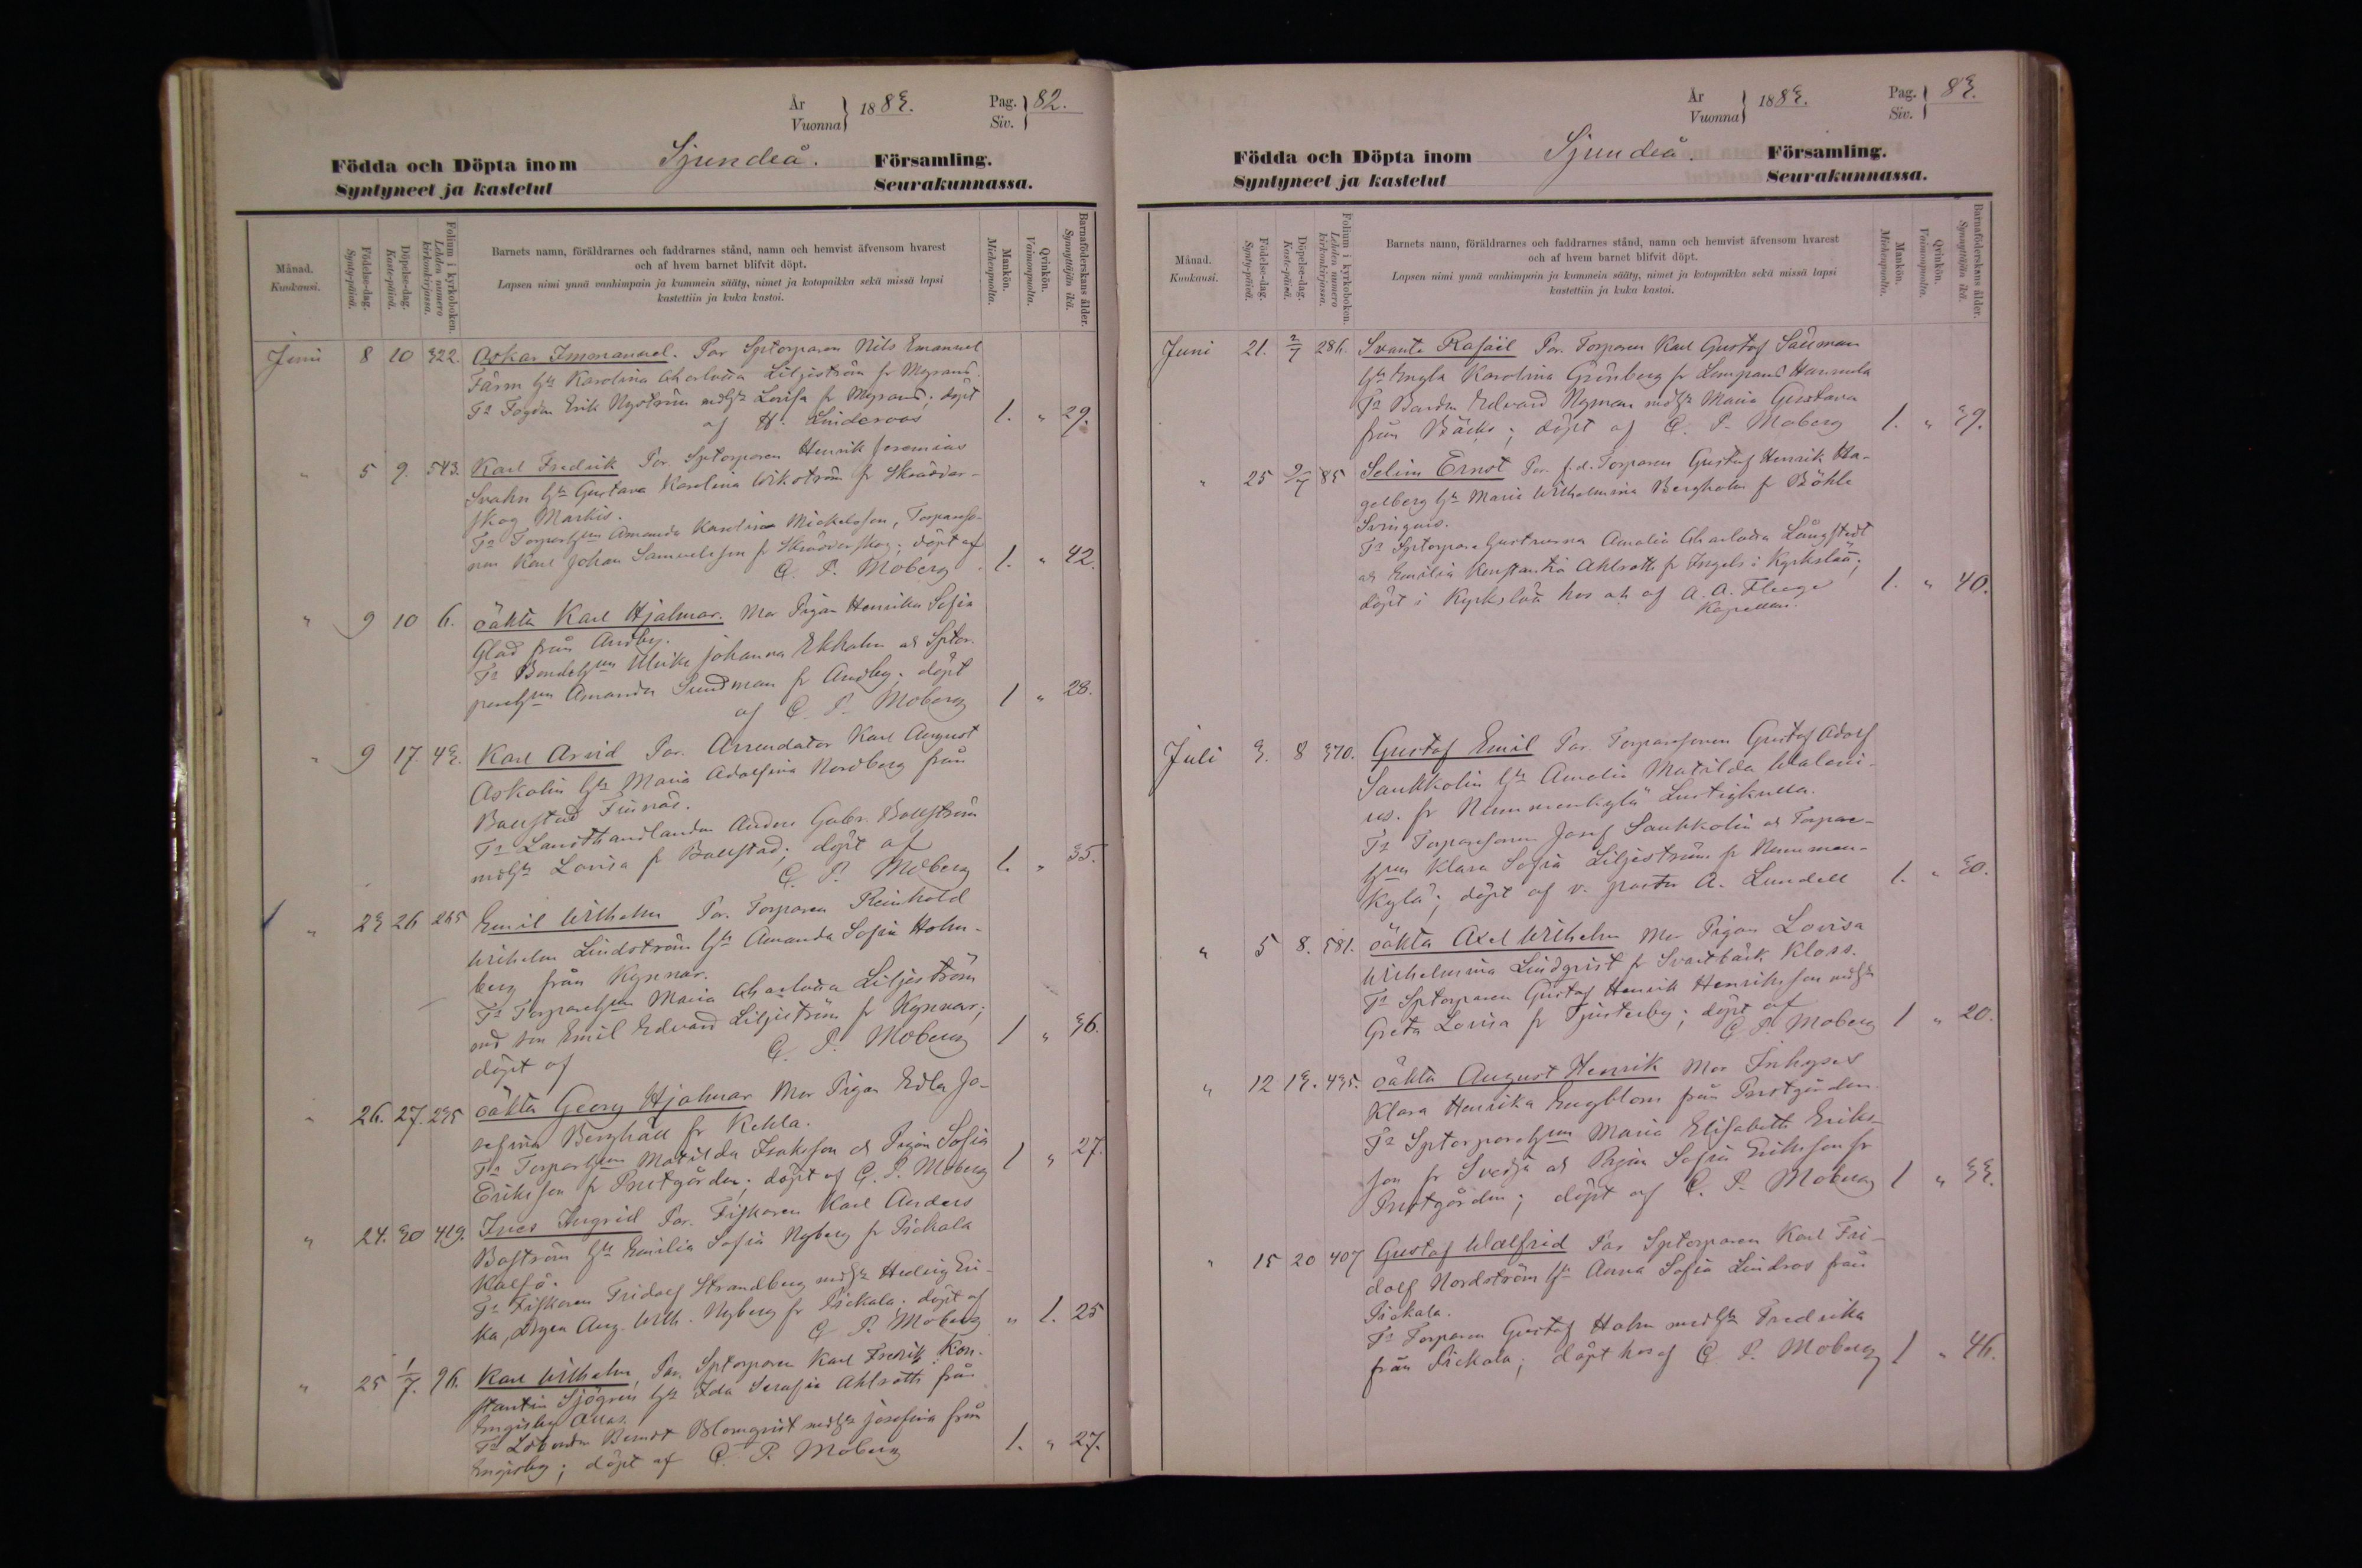 År
Vuonna
1883.
Pag.
Siv.
82.
Födda och Döpta inom Sjundeå. Församling.
Syntyneet ja kastetut Seurakunnassa.
Månad.
Kuukausi.
Födelse-dag.
Synty-päivä.
Döpelse-dag.
Kaste-päivä.
Folium i kyrkoboken.
Lehden numero kirkonkirjassa.
Barnets namn, föräldrarnes och faddrarnes stånd, namn och hemvist äfvensom hvarest
och af hvem barnet blifvit döpt.
Lapsen nimi ynnä vanhimpain ja kummein sääty, nimet ja kotopaikka sekä missä lapsi
kastettiin ja kuka kastoi.
Mankön.
Miehenpuolta.
Qvinkön.
Vaimonpuolta.
Barnaföderskans ålder.
Synnyttäjän ikä.
Juni 8 10 322. Oskar Immanuel. Par Sptorparen Nils Emanuel
Färm hu Karolina Charlotta Liljeström fr Myrans.
Fr Fogden Erik Nyström md hu Lovisa fr Myrans; döpt
af H. Linderoos 1. " 29.
" 5 9. 543. Karl Fredrik Par. Sptorparen Henrik Jeremias
Svahn hu Gustava Karolina Wikström fr Skräddar-
skog Markis.
Fr Torparhun Amanda Karolina Mickelsson, Torpareso-
nen Karl Johan Samuelsson fr Skräddarskog; döpt af
C. P. Moberg 1. " 42.
" 9 10 6. oäkta Karl Hjalmar. Mor Pigan Henrika Sofia
Glad från Andby.
Fr Bondehun Ulrika Johanna Ekholm och Sptor-
parehun Amanda Sundman fr Andby; döpt
af C. P. Moberg 1 " 28.
" 9 17. 43. Karl Arvid Par. Arrendator Karl August
Askolin hu Maria Adolfina Nordberg från
Bollstad Finnäs.
Fr Landthandlanden Anders Gabr. Bollström
md hu Lovisa fr Bollstad; döpt af
C. P. Moberg 1. " 35.
" 23 26 265 Emil Wilhelm Par. Torparen Reinhold
Wilhelm Lindström hu Amanda Sofia Holm-
berg från Kynnar.
Fr Torparehun Maria Charlotta Liljeström
md son Emil Edvard Liljeström fr Kynnar;
döpt af C. P. Moberg 1 " 36.
" 26. 27. 235 oäkta Georg Hjalmar Mor Pigan Edla Jo-
sefina Berghäll fr Kehla.
Fr Torparhun Matilda Isaksson och Pigan Sofia
Eriksson fr Prestgården; döpt af C. P. Moberg 1 " 27.
" 24. 30 419. Ines Ingrid Par. Fiskaren Karl Anders
Boström hu Emilia Sofia Nyberg fr Pickala
Kalfö.
Fr Fiskaren Fridolf Strandberg md hu Hedvig Eri-
ka, Drgen Aug. Wilh. Nyberg fr Pickala; döpt af
C. P. Moberg " 1. 25
" 25 1/7. 96. Karl Wilhelm, Par. Sptorparen Karl Fredrik Kon-
stantin Sjögren hu Ida Serafia Ahlroth från
Engisby Allas.
Fr Löbonden Berndt Blomqvist md hu Josefina från
Engisby; döpt af C. P. Moberg 1. " 27.
År
Vuonna
1883.
Pag.
Siv.
83.
Födda och Döpta inom Sjundeå. Församling.
Syntyneet ja kastetut Seurakunnassa.
Månad.
Kuukausi.
Födelse-dag.
Synty-päivä.
Döpelse-dag.
Kaste-päivä.
Folium i kyrkoboken.
Lehden numero kirkonkirjassa.
Barnets namn, föräldrarnes och faddrarnes stånd, namn och hemvist äfvensom hvarest
och af hvem barnet blifvit döpt.
Lapsen nimi ynnä vanhimpain ja kummein sääty, nimet ja kotopaikka sekä missä lapsi
kastettiin ja kuka kastoi.
Mankön.
Miehenpuolta.
Qvinkön.
Vaimonpuolta.
Barnaföderskans ålder.
Synnyttäjän ikä.
Juni 21. 2/7 286. Svante Rafaël Par. Torparen Karl Gustaf Sallman
hu Engla Karolina Grönberg fr Lempans Hannula
Fr Bonden Edvard Nyman md hu Maria Gustava
från Bäcks; döpt af C. P. Moberg 1. " 39.
" 25 2/7 85 Selim Ernst Par. f.d. Torparen Gustaf Henrik Ha-
gelberg hu Maria Wilhelmina Bergholm fr Böhle
Svingars.
Fr Sptorparehustrurna Amalia Charlotta Långstedt
och Emilia Konstantia Ahlroth fr Ingels i Kyrkslätt;
döpt i Kyrkslätt hos och af A. A. Fleege 1. " 40.
Kapellan.
Juli 3. 8 370. Gustaf Emil Par. Torparesonen Gustaf Adolf
Saukkolin hu Amalia Matilda Waleni-
us. fr Nummenkylä Lustigkulla.
Fr Torparesonen Josef Saukkolin och Torpare-
hun Klara Sofia Liljeström fr Nummen-
kylä; döpt af v. pastor A. Lundell 1. " 30.
" 5 8. 581. oäkta Axel Wilhelm Mor Pigan Lovisa
Wilhelmina Lindqvist fr Svartbäck Kloss.
Fr Sptorparen Gustaf Henrik Henriksson md hu
Greta Lovisa fr Tjusterby; döpt af
C. P. Moberg 1 " 20.
" 12 13. 435. oäkta August Henrik Mor Inhyses
Klara Henrika Engblom från Prestgården
Fr Sptorparehun Maria Elisabeth Eriks-
son fr Svedja och Pigan Sofia Eriksson fr
Prestgården; döpt af C. P. Moberg 1 " 33.
" 15 20 407 Gustaf Walfrid Par Sptorparen Karl Fri-
dolf Nordström hu Anna Sofia Lindros från
Pickala.
Fr Torparen Gustaf Holm md hu Fredrika
från Pickala; döpt hos af C. P. Moberg 1 " 46.